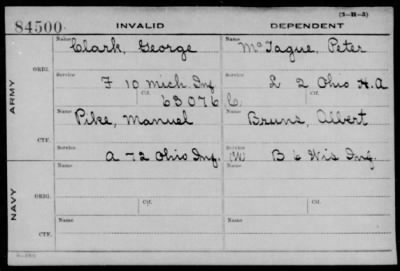 (3-H-3)
84500. INVALID DEPENDENT
Name Clark, George Name McTague, Peter
ORIG.
Service F 10 Mich Inf Service L 2 Ohio H.A
Ctf. 63076 Ctf. C
ARMY
Name Pike, Manuel Name Bruns, Albert
CTF.
Service A 72 Ohio Inf. Service W B 6 Wis Inf.
Name Name
ORIG.
Service Ctf. Service Ctf.
NAVY
Name Name
CTF.
Service Service